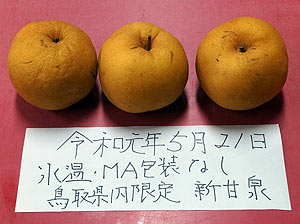 令和元年5月21日
氷温・MA包装なし
鳥取県内限定 新甘泉